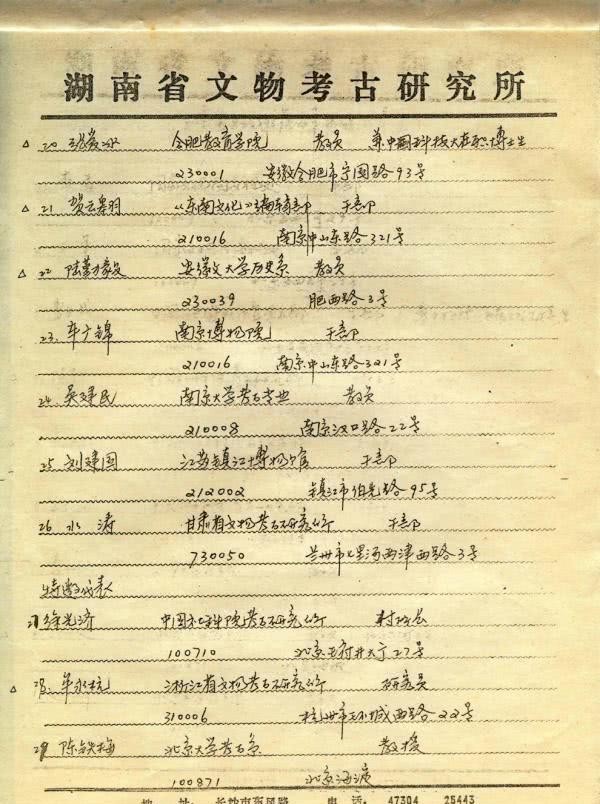 湖南省文物考古研究所
△ 20 张爱冰 合肥教育学院 教员 兼中国科技大在职博士生
230001 安徽合肥市宁国路93号
△ 21. 贺云翱 《东南文化》编辑部 干部
210016 南京中山东路321号
△ 22 陆勤毅 安徽大学历史系 教员
230039 肥西路3号
23. 车广锦 南京博物院 干部
210016 南京中山东路321号
24. 吴建民 南京大学考古专业 教员
210008 南京汉口路22号
25 刘建国 江苏镇江博物馆 干部
212002 镇江市伯先路95号
26 水涛 甘肃省文物考古研究所 干部
730050 兰州市七里河西津西路3号
特邀代表
27 徐光冀 中国社科院考古研究所 副所长
100710 北京王府井大街27号
△ 28. 牟永抗 浙江省文物考古研究所 研究员
310006 杭州市环城西路22号
29 陈铁梅 北京大学考古系 教授
100871 北京海淀
地 址: 长沙市东风路 电 话: 47304 25443